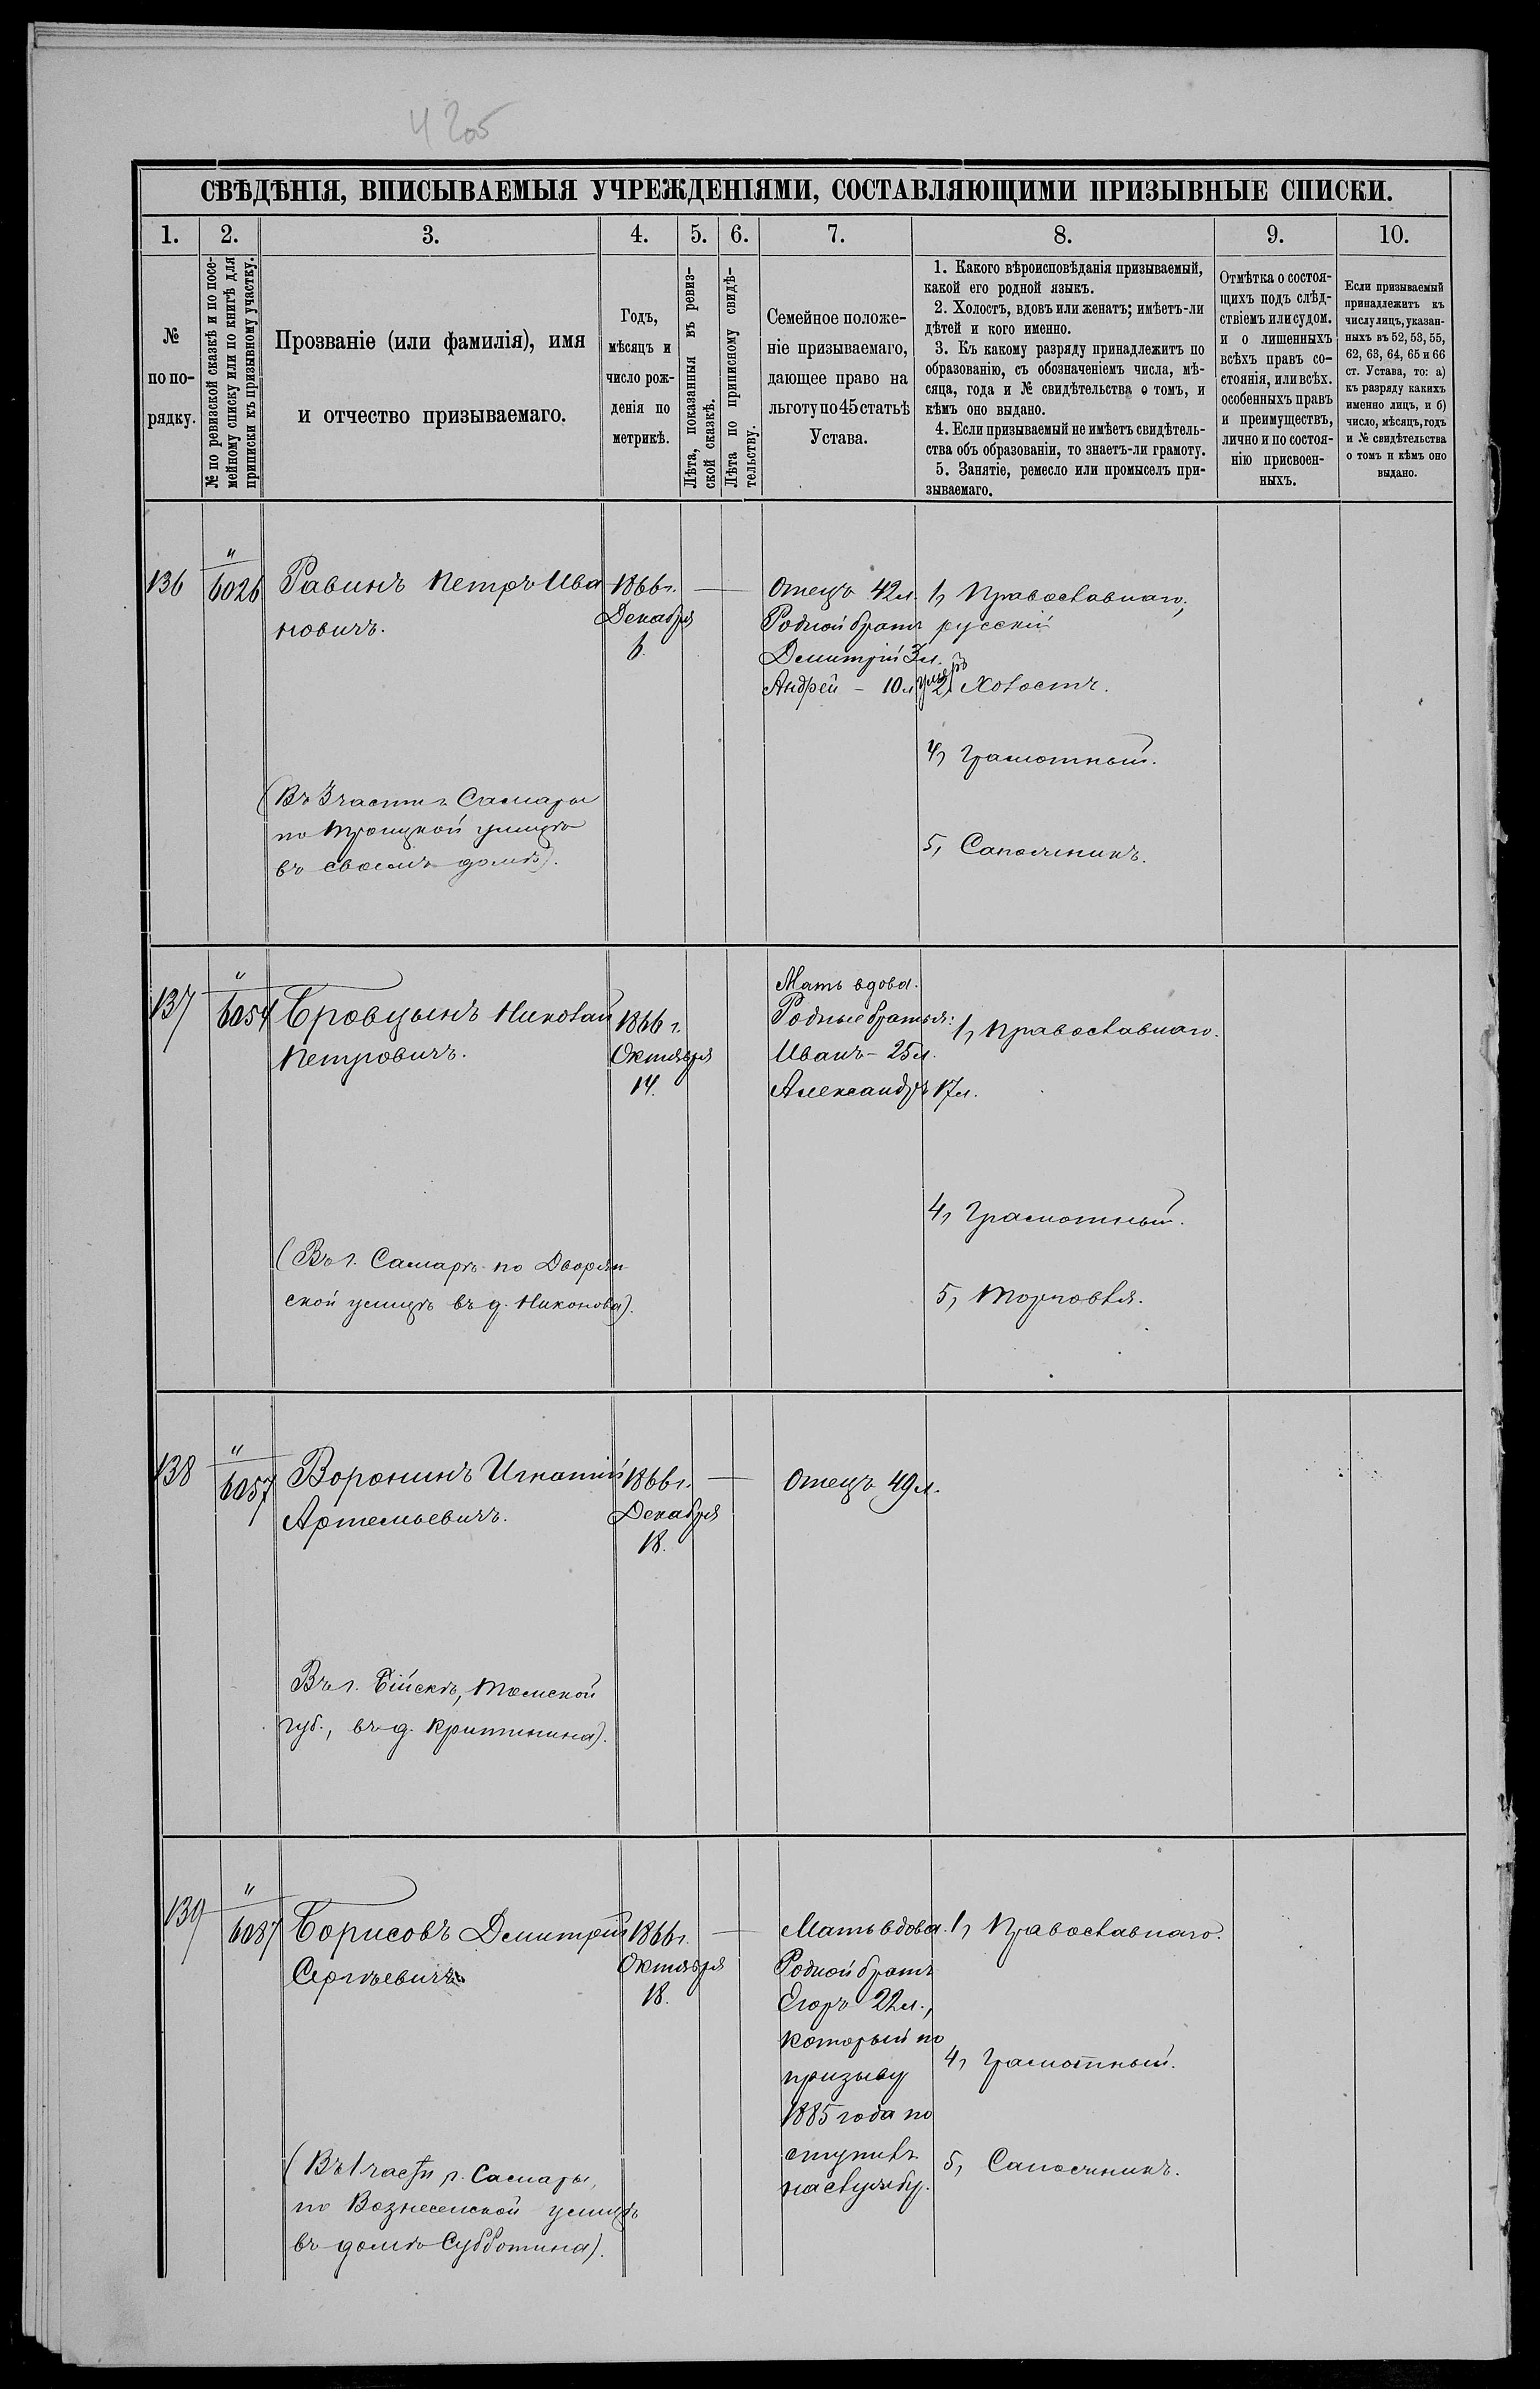 4205
СВѢДѢНІЯ, ВПИСЫВАЕМЫЯ УЧРЕЖДЕНІЯМИ, СОСТАВЛЯЮЩИМИ ПРИЗЫВНЫЕ СПИСКИ.
1. 2. 3. 4. 5. 6. 7. 8. 9. 10.
№
по по-
рядку.
№ по ревизской сказкѣ и по посе-
мейному списку или по книгѣ для
приписки къ призывному участку.
Прозваніе (или фамилія), имя
и отчество призываемаго.
Годъ,
мѣсяцъ и
число рож-
денія по
метрикѣ.
Лѣта, показанныя въ ревиз-
ской сказкѣ.
Лѣта по приписному свидѣ-
тельству.
Семейное положе-
ніе призываемаго,
дающее право на
льготу по 45 статьѣ
Устава.
1. Какого вѣроисповѣданія призываемый,
какой его родной языкъ.
2. Холостъ, вдовъ или женатъ; имѣетъ-ли
дѣтей и кого именно.
3. Къ какому разряду принадлежитъ по
образованію, съ обозначеніемъ числа, мѣ-
сяца, года и № свидѣтельства о томъ, и
кѣмъ оно выдано.
4. Если призываемый не имѣетъ свидѣтель-
ства объ образованіи, то знаетъ-ли грамоту.
5. Занятіе, ремесло или промыселъ при-
зываемаго.
Отмѣтка о состоя-
щихъ подъ слѣд-
ствіемъ или судом.
и о лишенныхъ
всѣхъ правъ со-
стоянія, или всѣх.
особенныхъ правъ
и преимуществъ,
лично и по состоя-
нію присвоен-
ныхъ.
Если призываемый
принадлежитъ къ
числу лицъ, указан-
ныхъ въ 52, 53, 55,
62, 63, 64, 65 и 66
ст. Устава, то: а)
къ разряду какихъ
именно лицъ, и б)
число, мѣсяцъ, годъ
и № свидѣтельства
о томъ и кѣмъ оно
выдано.
136
"
6026
Равинъ Петръ Ива
новичъ.
(Въ 3 части г. Самары
по Троицкой улицѣ
въ своемъ домѣ).
1866 г.
Декабря
6.
Отецъ 42 л.
Родной братъ
Дмитрій 3 л.
Андрей – 10 л умеръ
1, Православнаго,
русскій
2, Холостъ.
4, Грамотный.
5, Сапожникъ.
137
"
6054
Бровцынъ Николай
Петровичъ.
(Въ г. Самарѣ по Дворян
ской улицѣ въ д. Никонова).
1866 г.
Октября
14.
Мать вдова.
Родные братья:
Иванъ – 25 л.
Александръ 17 л.
1, Православнаго.
4, Грамотный.
5, Торговля.
138
"
6057
Воронинъ Игнатій
Артемьевичъ.
Въ г. Бійскѣ, Томской
губ., въ д. Критинина).
1866 г.
Декабря
18.
Отецъ 49 л.
139
"
6087
Борисовъ Дмитрій
Сергѣевичъ
(Въ 1 части г. Самары,
по Вознесенской улицѣ
въ домѣ Субботина).
1866 г.
Октября
18.
Мать вдова.
Родной братъ
Егоръ 22 л.,
который по
призыву
1885 года по
ступилъ
на службу.
1, Православнаго.
4, Грамотный.
5, Сапожникъ.